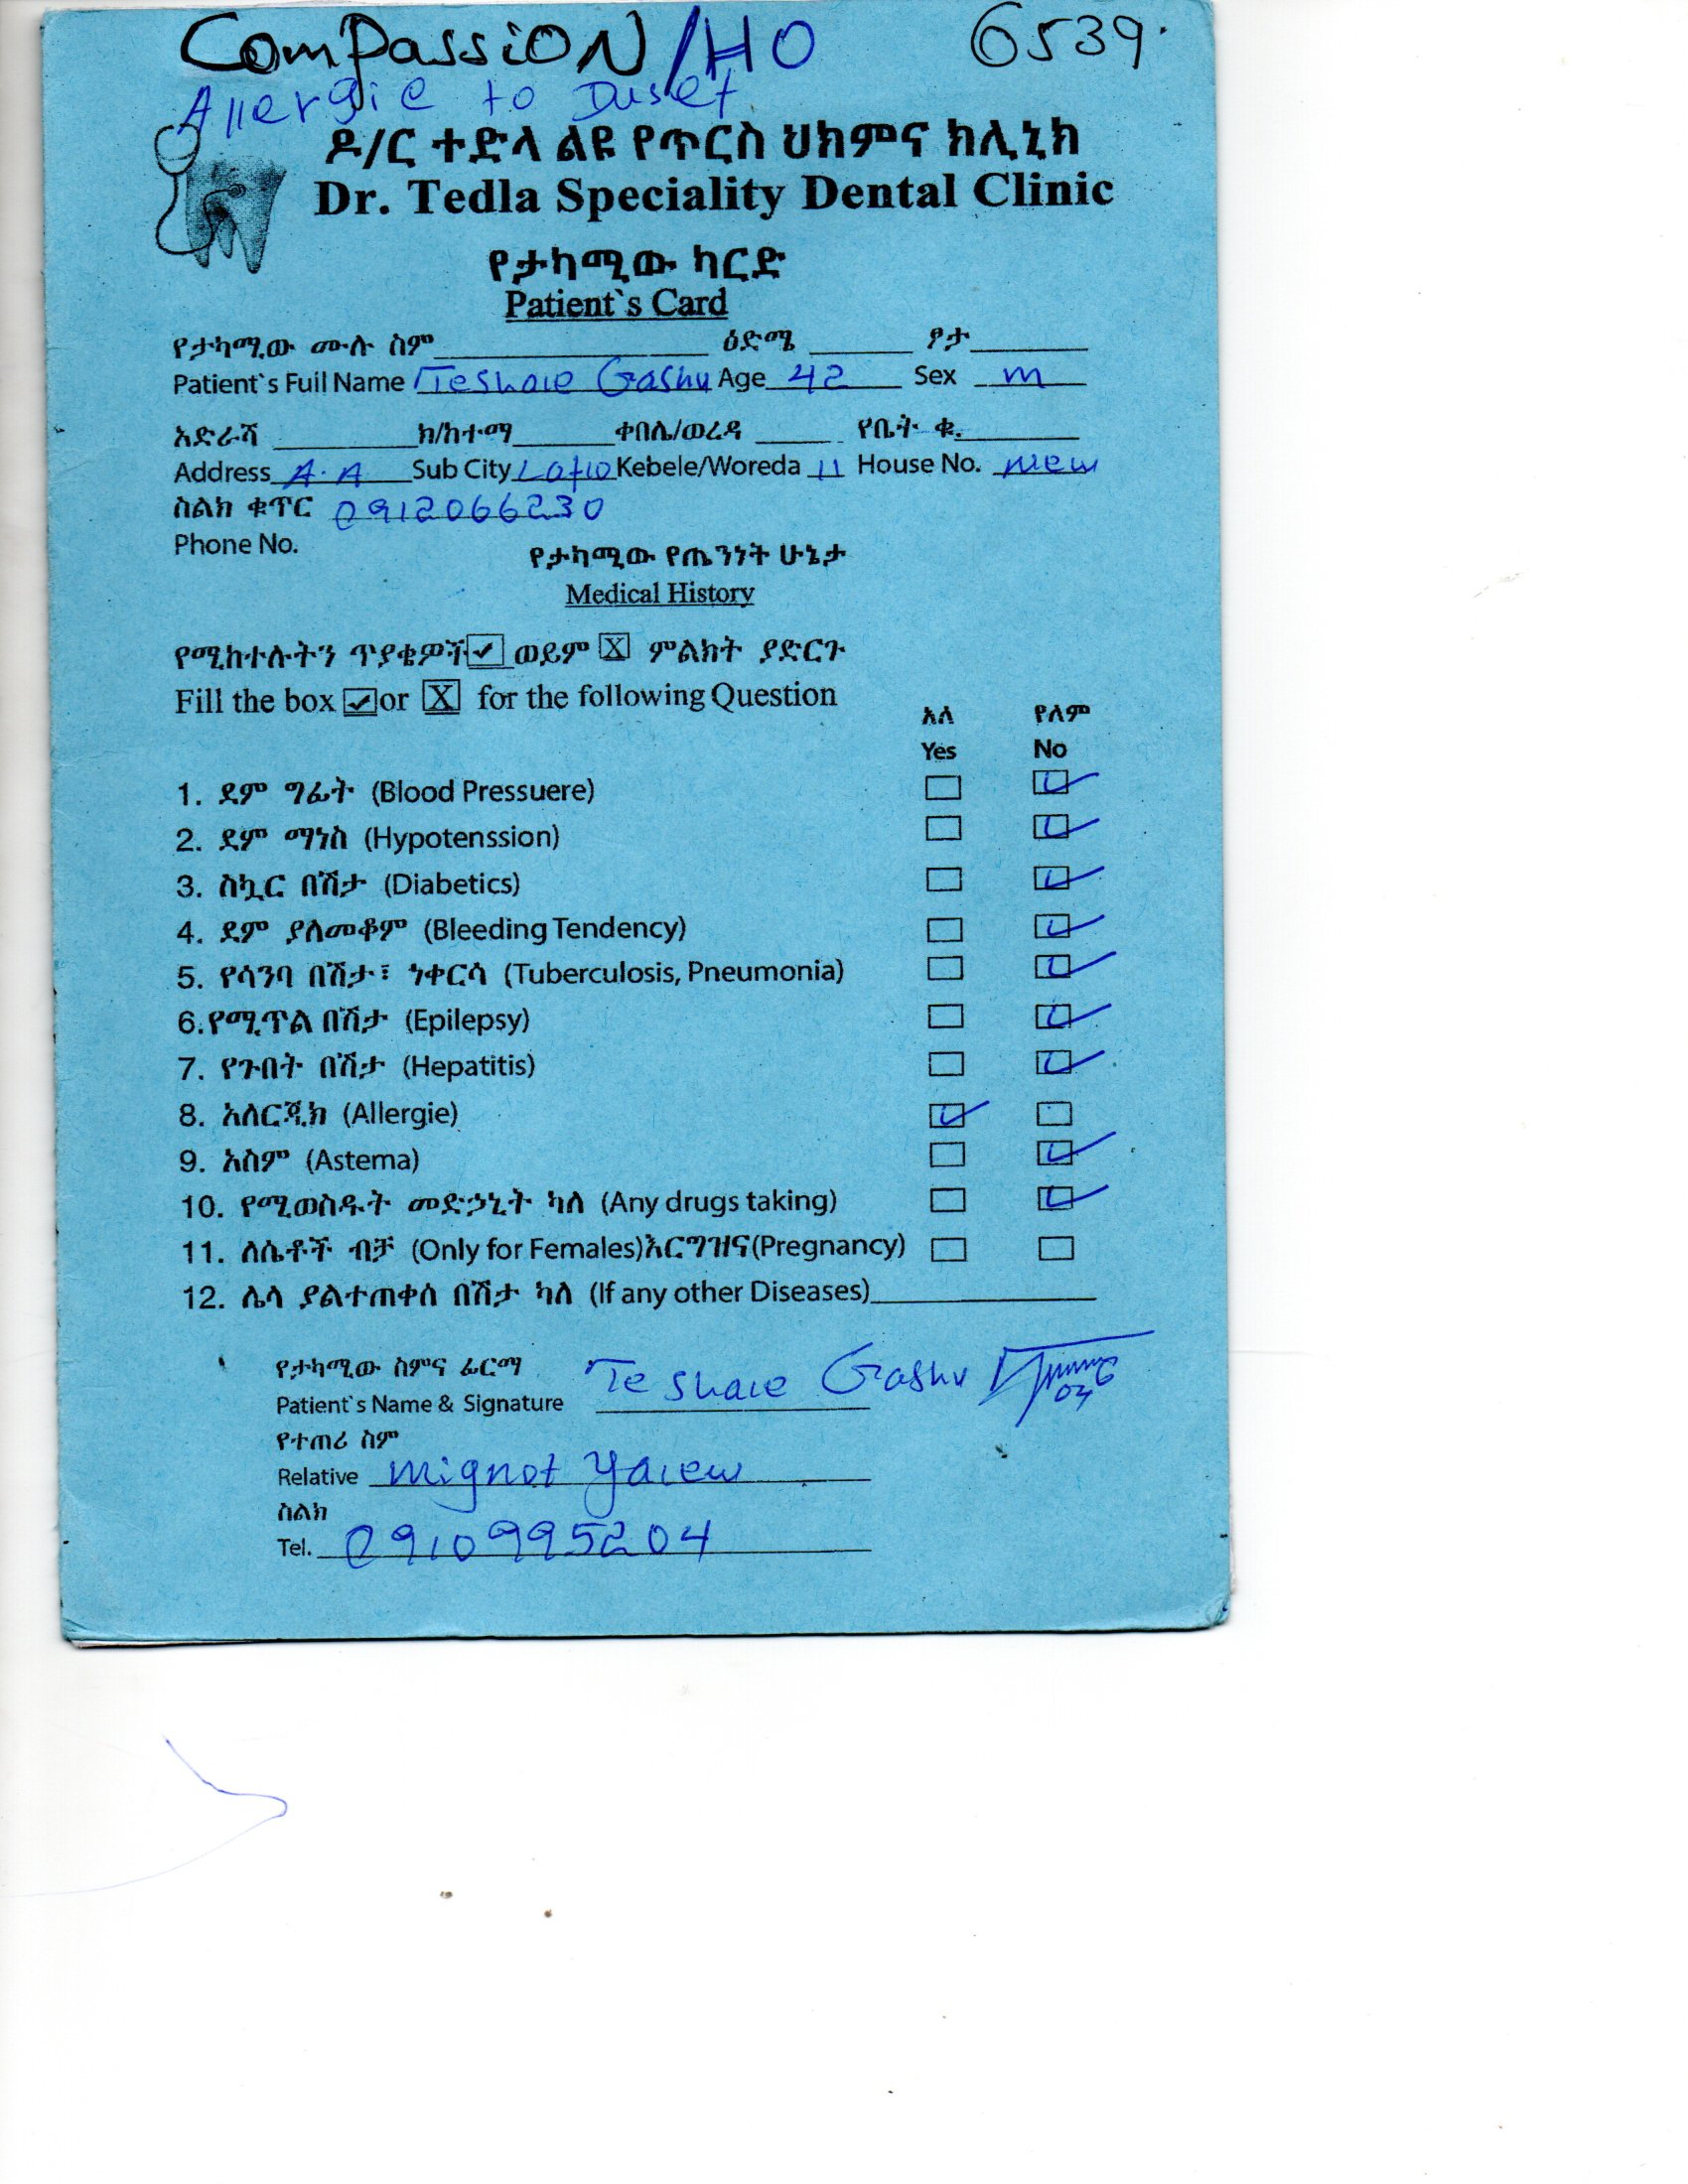 Compassion/HO 6539.
Allergie to Duset
ዶ/ር ተድላ ልዩ የጥርስ ህክምና ክሊኒክ
Dr. Tedla Speciality Dental Clinic
የታካሚው ካርድ
Patient`s Card
የታካሚው ሙሉ ስም ዕድሜ ፆታ
Patient`s Fuil Name Teshale Gashu Age 42 Sex m
አድራሻ ክ/ከተማ ቀበሌ/ወረዳ የቤት ቁ.
Address A.A Sub City Kebele/Woreda 11 House No. new
ስልክ ቁጥር 0912066230
Phone No.
የታካሚው የጤንነት ሁኔታ
Medical History
የሚከተሉትን ጥያቄዎች ✓ ወይም X ምልክት ያድርጉ
Fill the box ✓ or X for the following Question
አለ የለም
Yes No
1. ደም ግፊት (Blood Pressuere) ☐ ☑
2. ደም ማነስ (Hypotenssion) ☐ ☑
3. ስኳር በሽታ (Diabetics) ☐ ☑
4. ደም ያለመቆም (Bleeding Tendency) ☐ ☑
5. የሳንባ በሽታ፣ ነቀርሳ (Tuberculosis, Pneumonia) ☐ ☑
6.የሚጥል በሽታ (Epilepsy) ☐ ☑
7. የጉበት በሽታ (Hepatitis) ☐ ☑
8. አለርጂክ (Allergie) ☑ ☐
9. አስም (Astema) ☐ ☑
10. የሚወስዱት መድኃኒት ካለ (Any drugs taking) ☐ ☑
11. ለሴቶች ብቻ (Only for Females)እርግዝና(Pregnancy) ☐ ☐
12. ሌላ ያልተጠቀሰ በሽታ ካለ (If any other Diseases)
የታካሚው ስምና ፊርማ
Patient`s Name & Signature Teshale Gashu
የተጠሪ ስም
Relative mignot Yalew
ስልክ
Tel. 0910995204